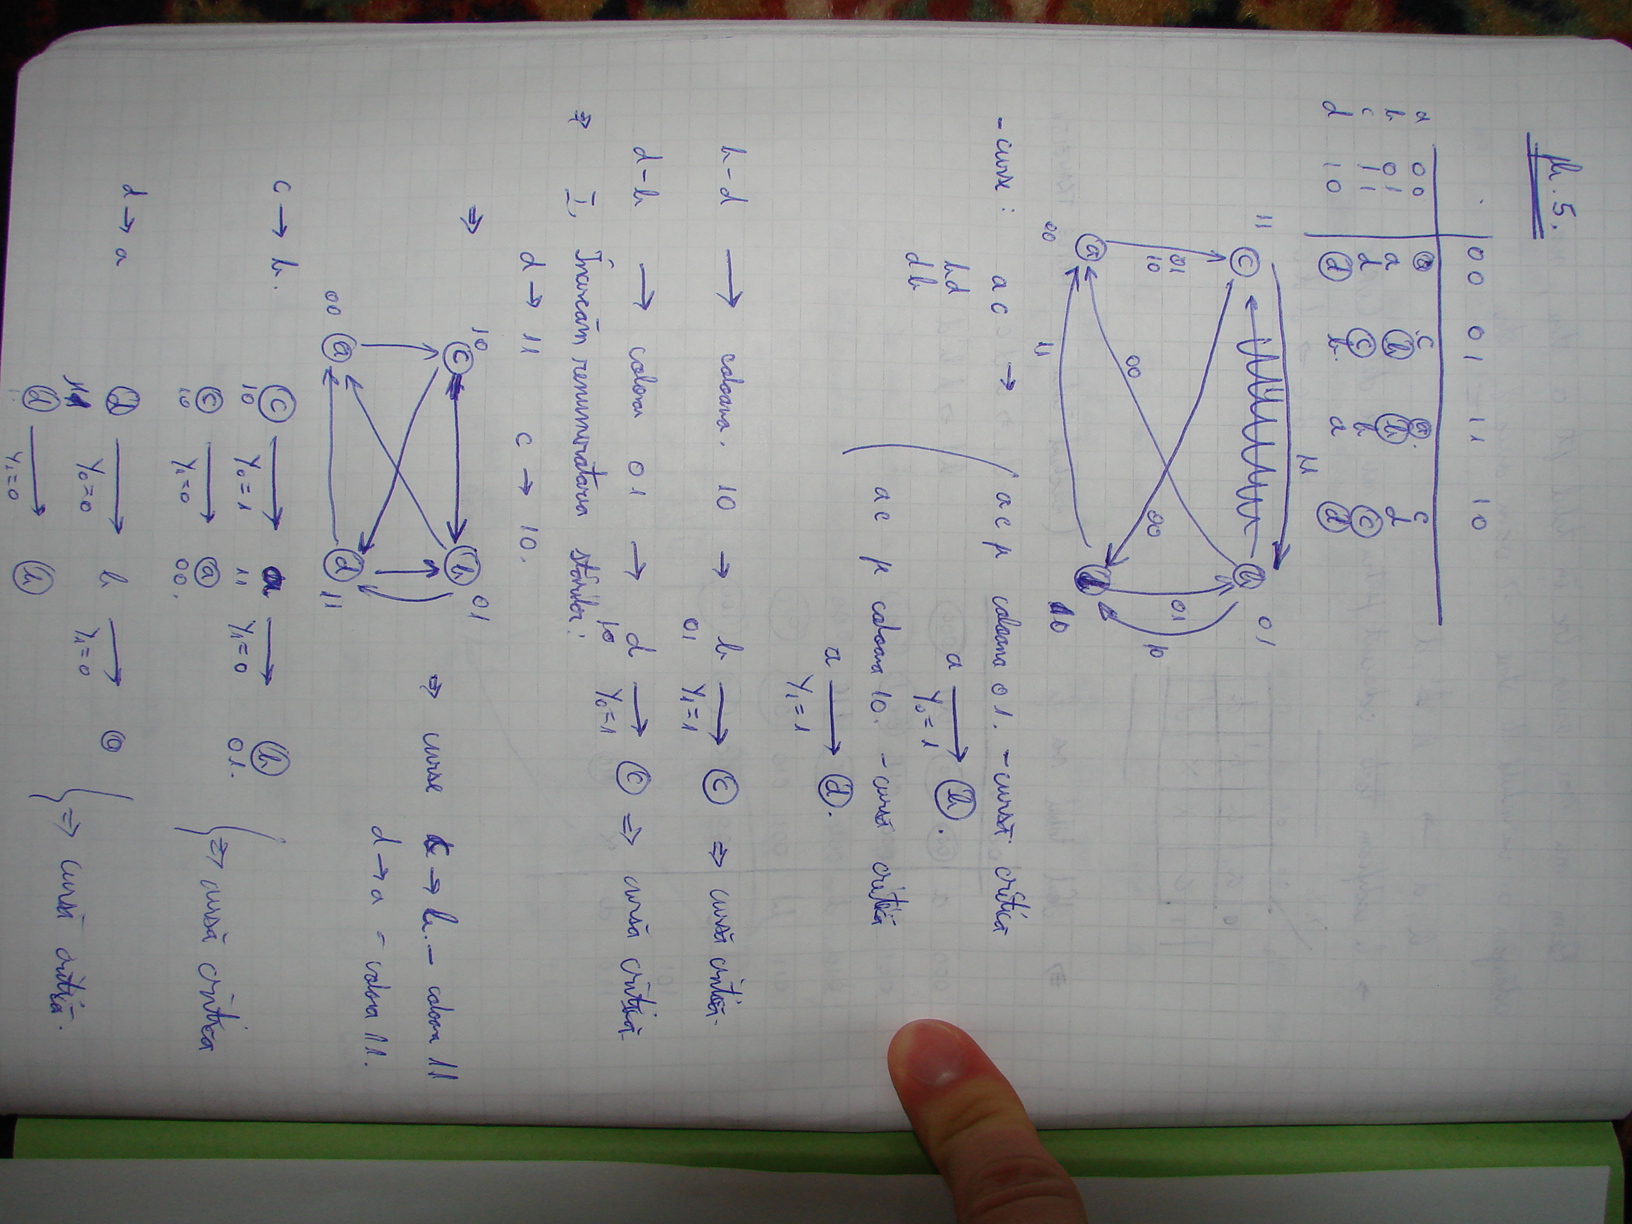 Pb. 5.
00 01 11 10
a 00 ⓐ c ⓐ c
b 01 a ⓑ ⓑ d
c 11 d ⓒ b ⓒ
d 10 ⓓ b a ⓓ
11 ⓒ 11 ⓑ 01
01 10 00 00 01 10
00 ⓐ 11 ⓓ 10
- curse: ac → ac p coloana 01. - cursă critică
bd a Y₀=1 → ⓑ.
db
ac p coloana 10. - cursă critică
a Y₁=1 → ⓓ.
b-d → coloana 10 → b 01 Y₁=1 → ⓒ ⇒ cursă critică.
d-b → coloana 01 → d 10 Y₀=1 → ⓒ ⇒ cursă critică
⇒ I. Încercăm renumerotarea stărilor:
d → 11 c → 10.
⇒ 10 ⓒ ⓑ 01 ⇒ curse c → b. - coloana 11
00 ⓐ ⓓ 11 d → a - coloana 11.
c → b. ⓒ 10 Y₀=1 → 11 Y₁=0 → ⓑ 01.
ⓒ 10 Y₁=0 → ⓐ 00. ⇒ cursă critică
d → a ⓓ Y₀=0 → b Y₁=0 → ⓐ
ⓓ Y₁=0 → ⓑ ⇒ cursă critică.